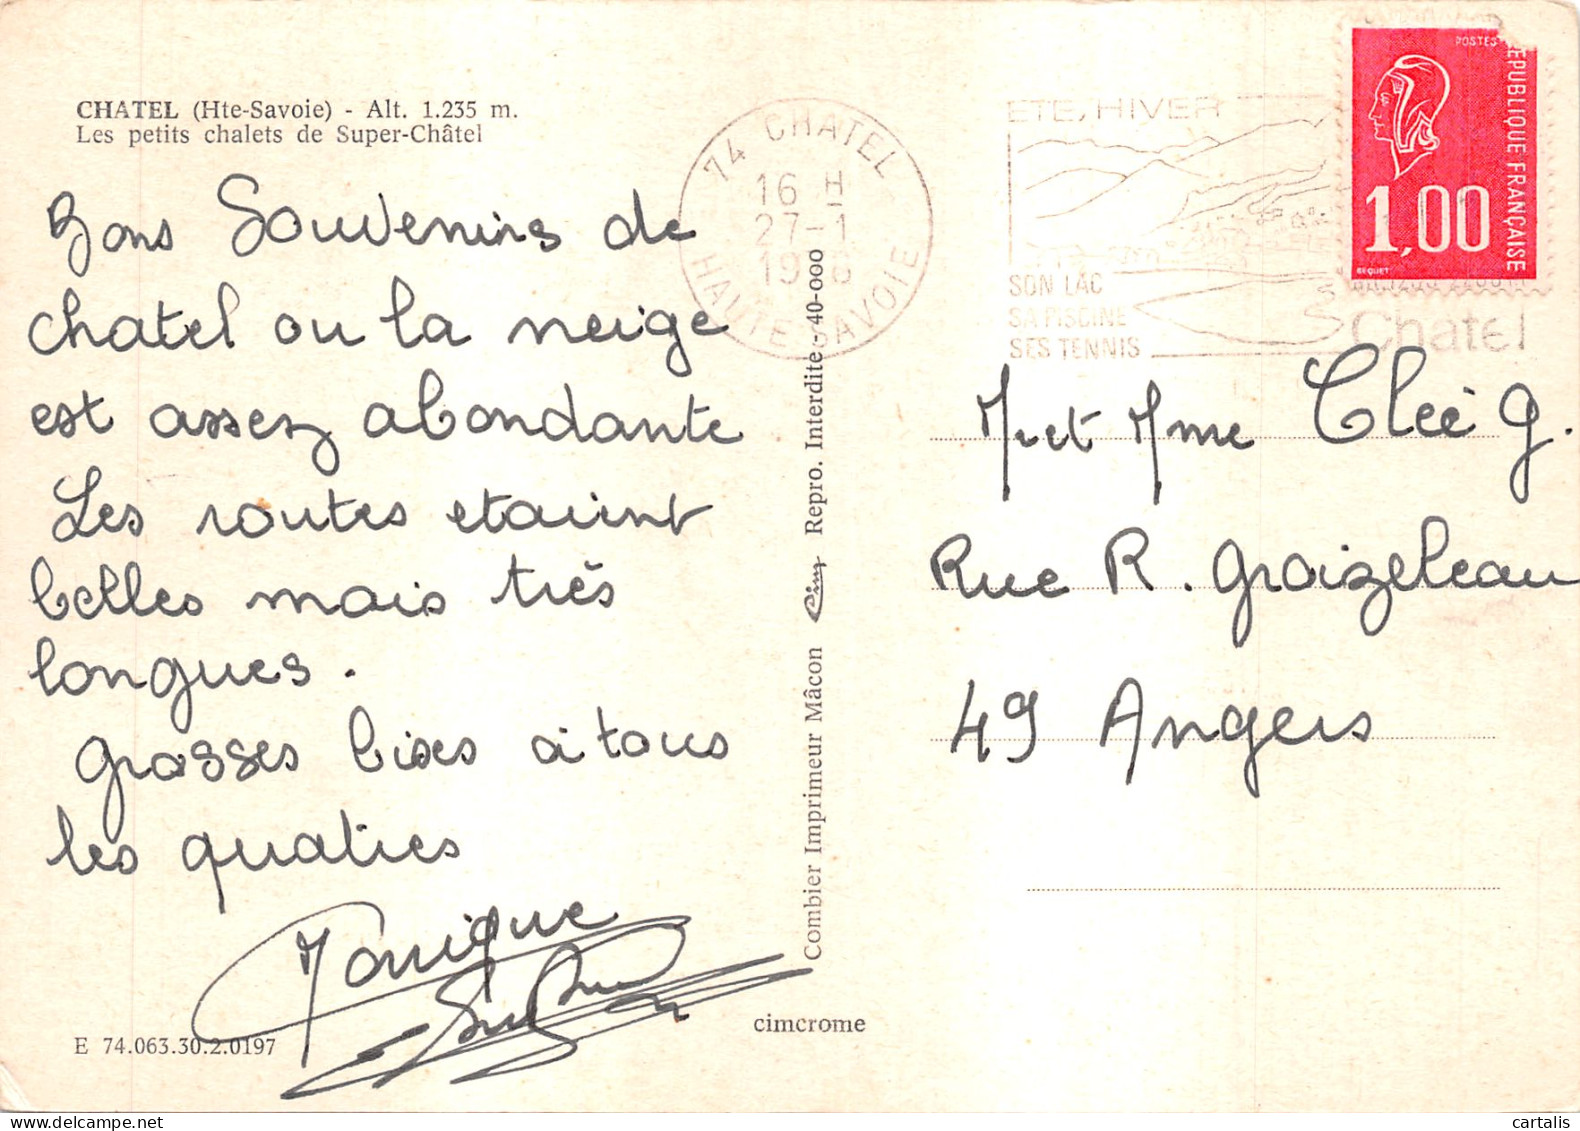 CHATEL (Hte-Savoie) - Alt. 1.235 m.
Les petits chalets de Super-Châtel
Bons Souvenirs de
chatel ou la neige
est assez abondante
Les routes etaient
belles mais très
longues.
grosses bises à tous
les quatres
Monique
E 74.063.30.2.0197
cimcrome
Combier Imprimeur Mâcon Cim Repro. Interdite - 40-000
74 CHATEL
16 H
27-1
HAUTE-SAVOIE
ETE, HIVER
SON LAC
SA PISCINE
SES TENNIS
Chatel
POSTES
REPUBLIQUE FRANÇAISE
1,00
BEQUET
Mr et Mme Clee G.
Rue R. Groizeleau
49 Angers
cartalis